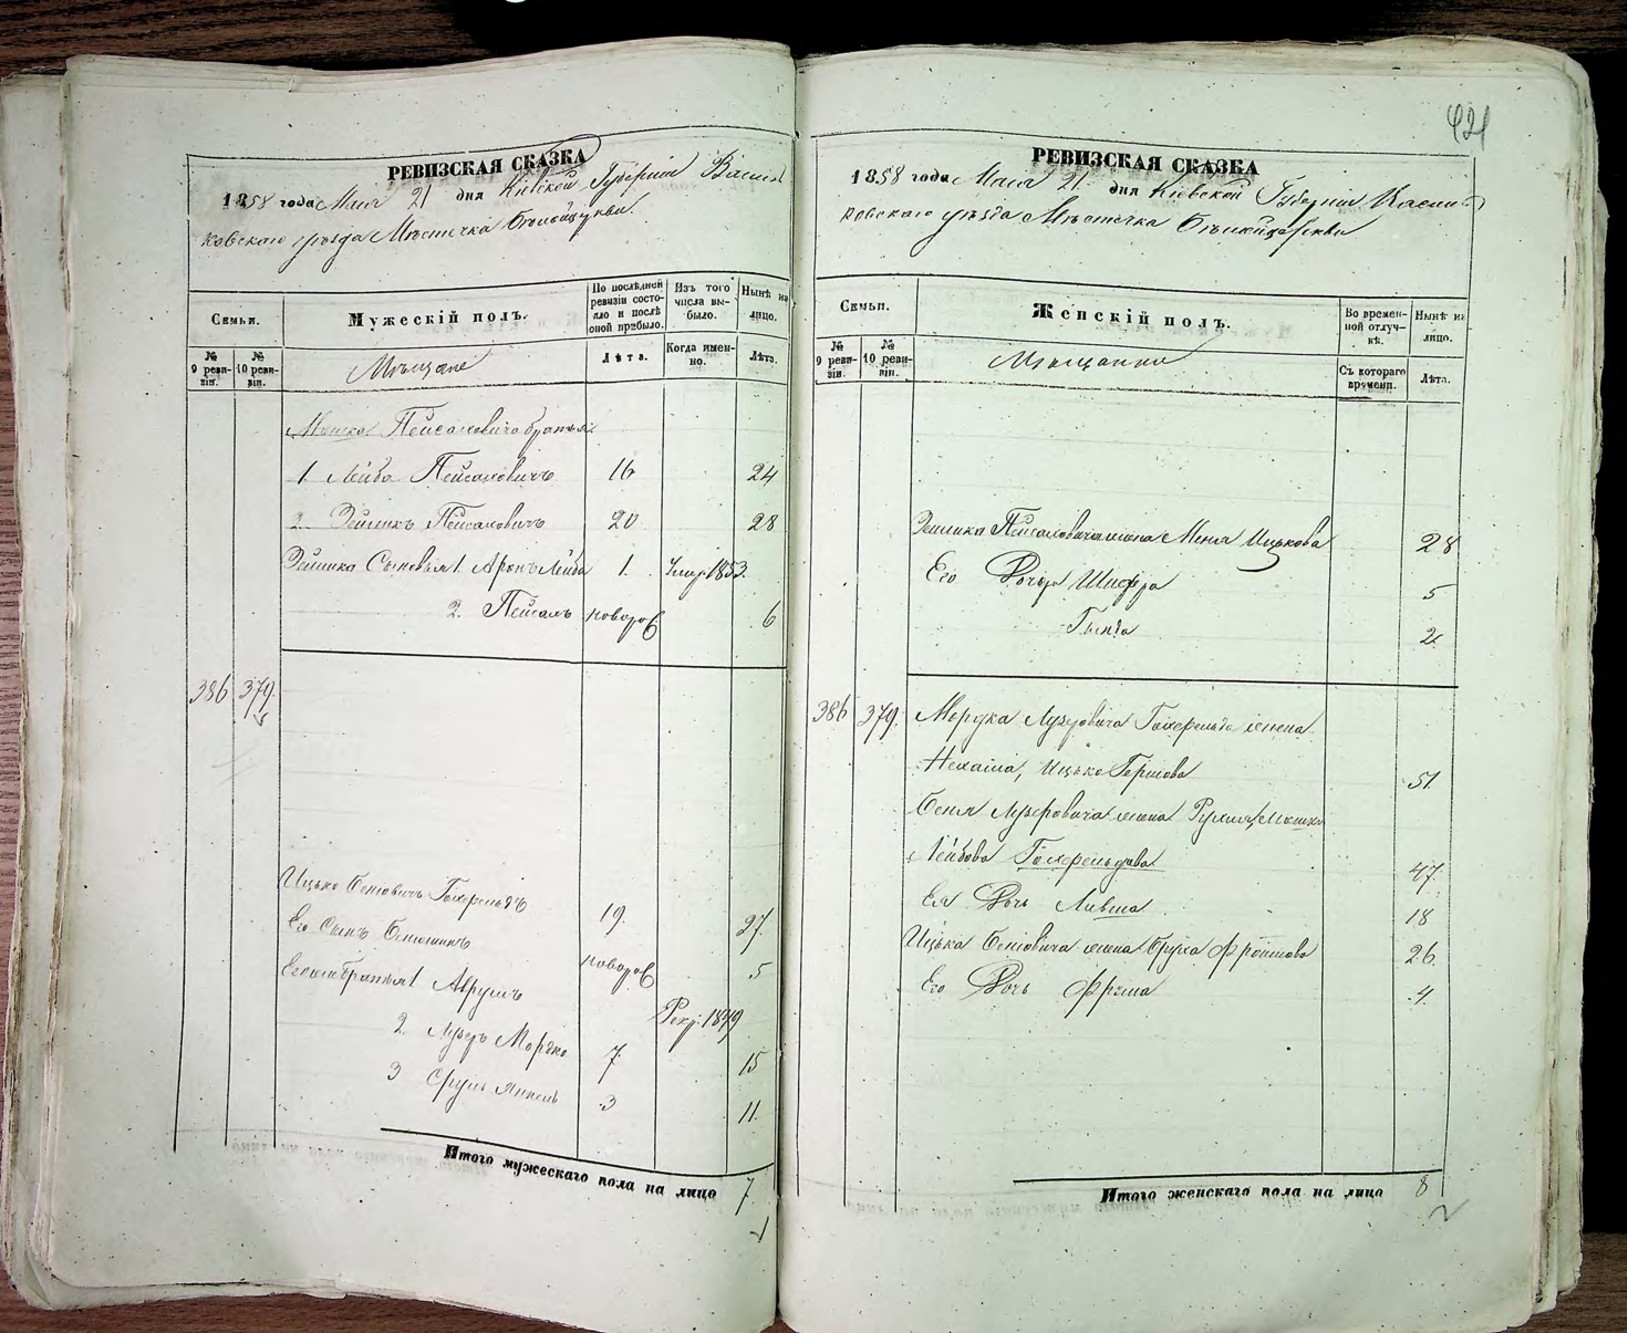 421
РЕВИЗСКАЯ СКАЗКА
1858 года Мая 21 дня Кіевской Губерніи Василь
ковскаго уѣзда Мѣстечка Бѣлойцеркви.
Семьи.
Мужескій полъ.
По послѣдней ревизіи состояло и послѣ оной прибыло.
Изъ того числа выбыло.
Нынѣ на лицо.
№ 9 ревизіи.
№ 10 ревизіи.
Мѣщане
Лѣта.
Когда именно.
Лѣта.
Мошка Пейсаховича братья
1 Лейба Пейсаховичъ 16 24
2 Зейликъ Пейсаховичъ 20 28
Зейлика Сыновья 1. Аронъ Лейба 1. Умер. 1853.
2. Пейсахъ новорож 6
386 379.
Ицько Беніовичъ 19. 27.
Его Сынъ Беніоминъ новорож 5
Его братья 1 Аврумъ Рекр. 1849
2. Лузеръ Мордко 7. 15
3 Сруль Янкель 3 11.
Итого мужескаго пола на лицо 7
РЕВИЗСКАЯ СКАЗКА
1858 года Мая 21 дня Кіевской Губерніи Василь
ковскаго уѣзда Мѣстечка Бѣлойцеркви
Семьи.
Женскій полъ.
Во временной отлучкѣ.
Нынѣ на лицо.
№ 9 ревизіи.
№ 10 ревизіи.
Мѣщанки
Съ котораго времени.
Лѣта.
Зейлика Пейсаховича жена Меня Ицькова 28
Его Дочери Шифра 5
2
386 379. Мордка Лузеровича жена
Нехама, Ицько Гершова 51.
Беня Лузеровича жена Рухля, Мошко
Лейбова 47.
Ея Дочь 18
Ицька Беніовича жена Бруха Фроимова 26.
Его Дочь Фрима 4.
Итого женскаго пола на лицо 8